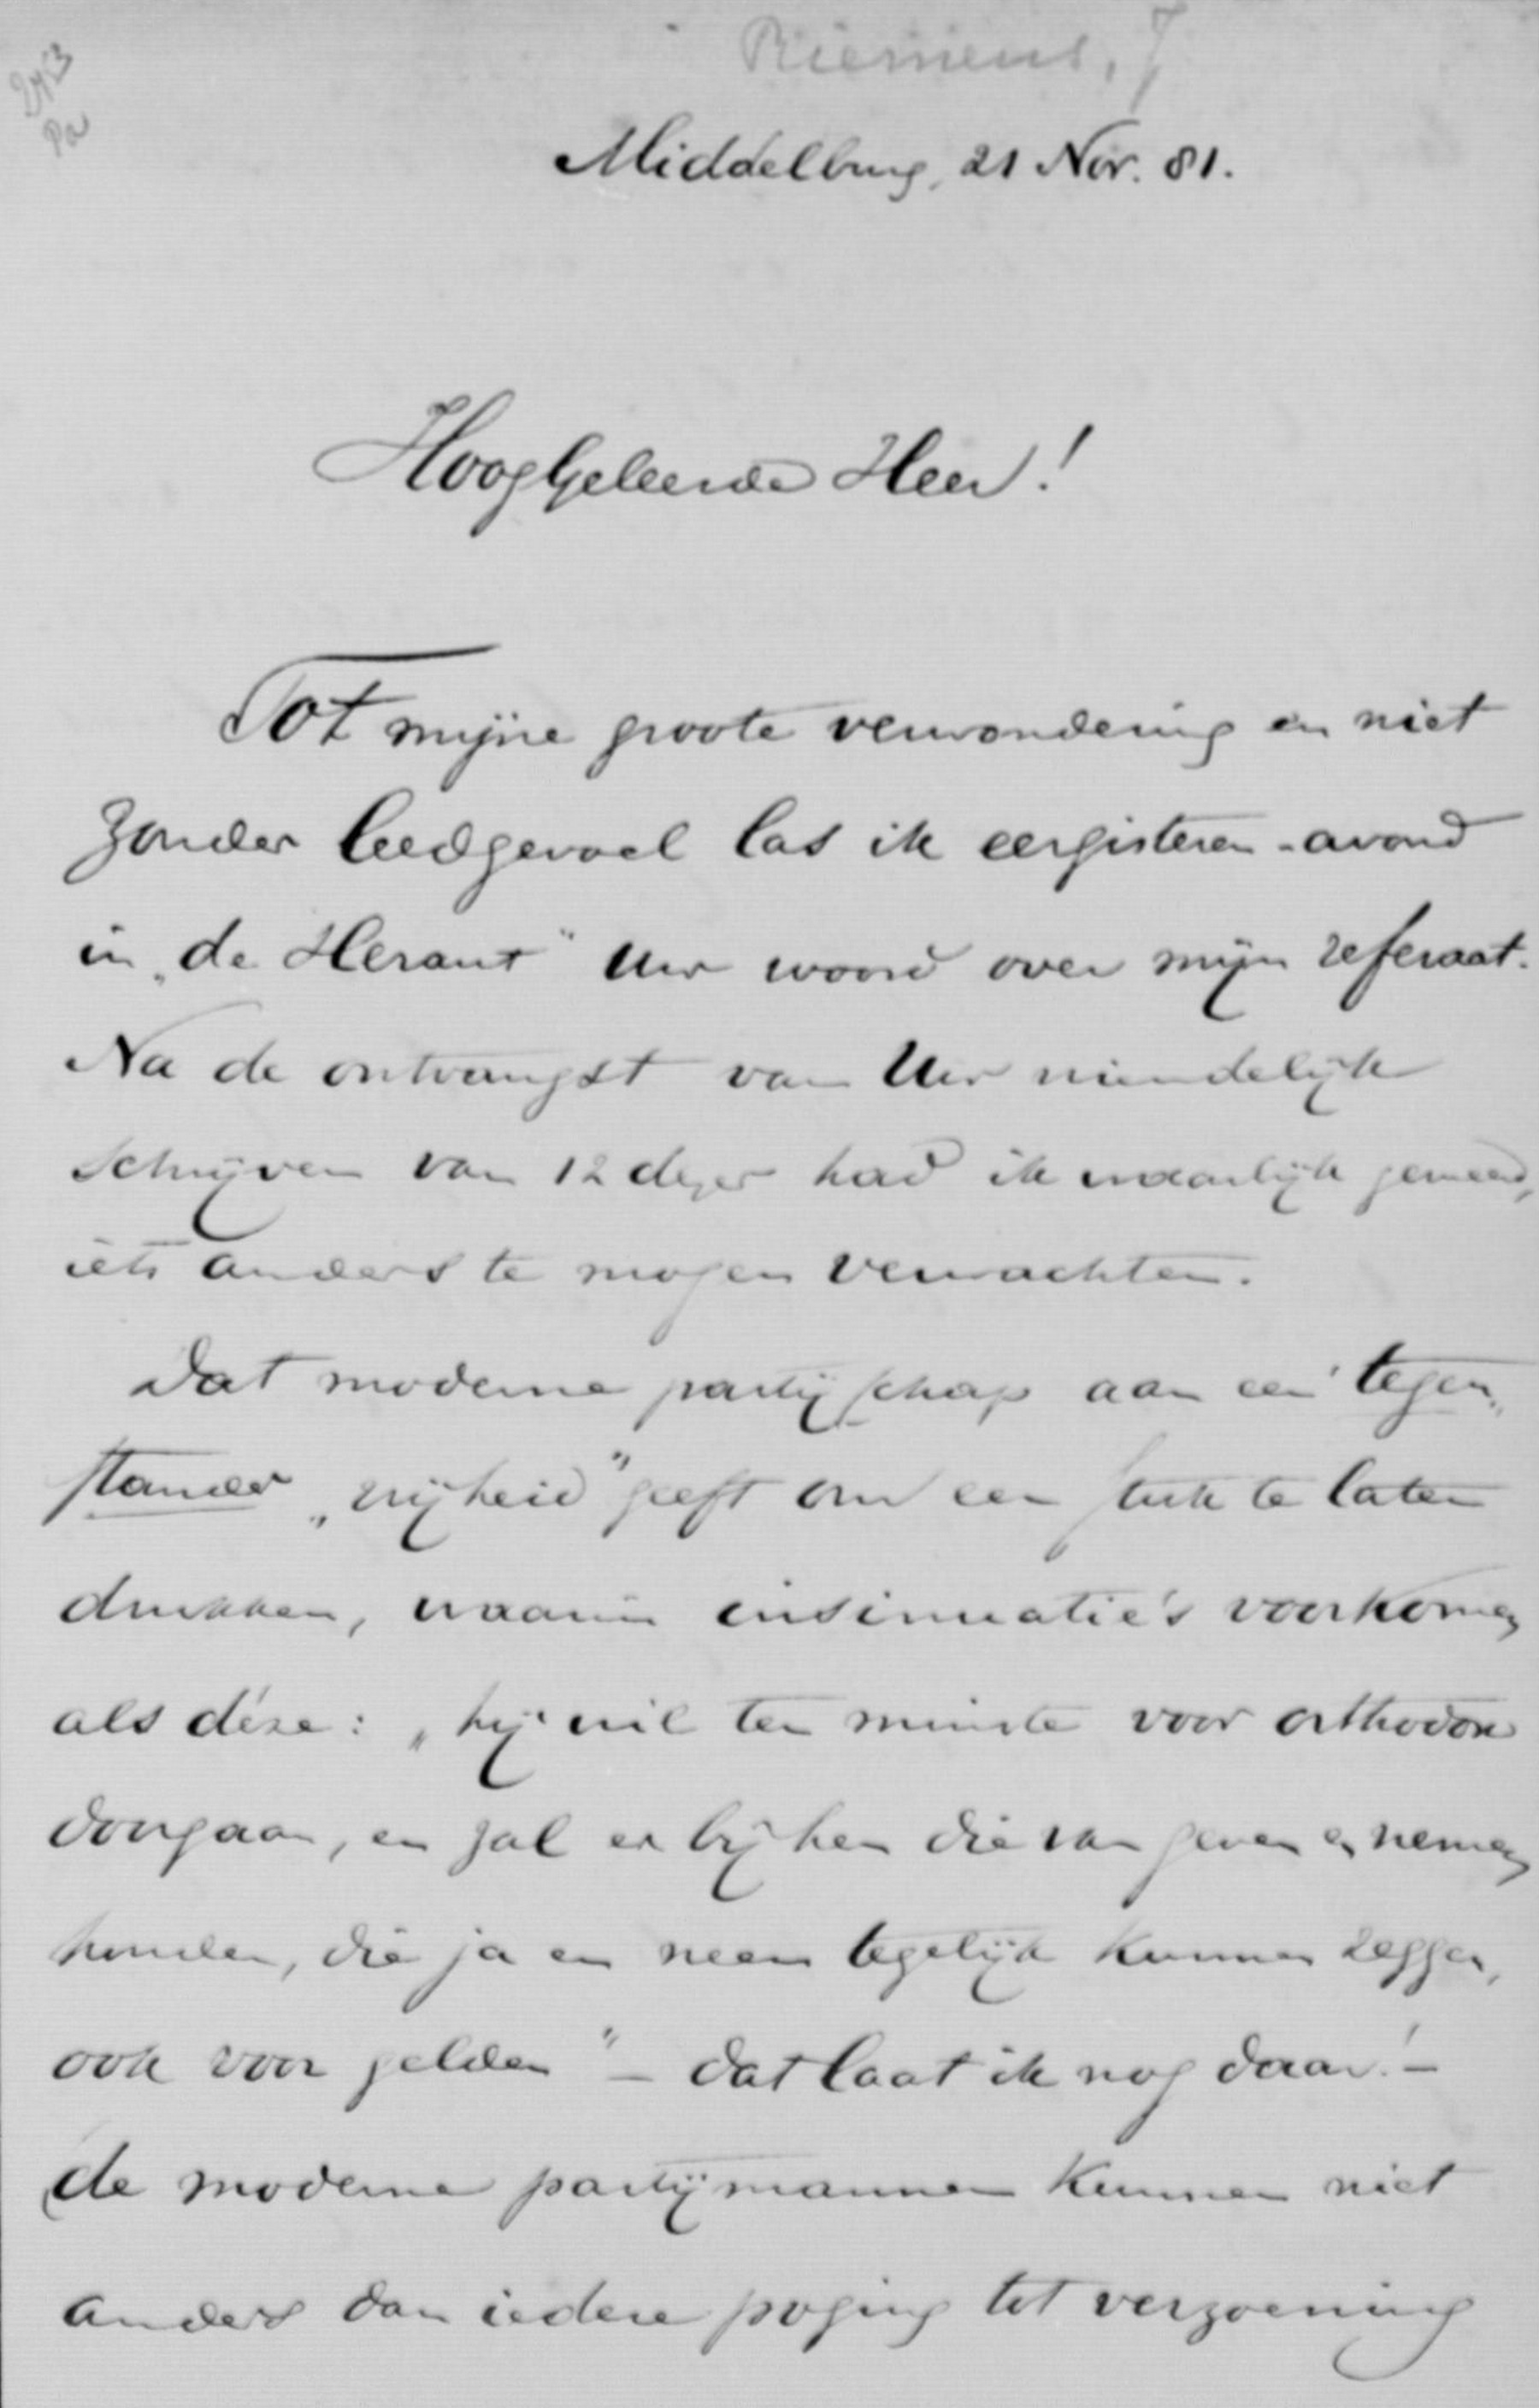 Riemens, J
2413
Pa
Middelburg, 21 Nov. 81.
HoogGeleerde Heer!
Tot mijne groote verwondering en niet
zonder leedgevoel las ik eergisteren-avond
in „de Heraut" Uw woord over mijn referaat.
Na de ontvangst van Uw vriendelijk
schrijven van 12 dezer had ik waarlijk gemeend,
iets anders te mogen verwachten.
Dat moderne partijschap aan een tegen„
stander „vrijheid" geeft om een stuk te laten
drukken, waarin insinuatie's voorkomen
als deze: „hij wil ten minste voor orthodox
doorgaan, en zal er bij hen die van geven en nemen
houden, die ja en neen tegelijk kunnen zeggen,
ook voor gelden" – dat laat ik nog daar! –
de moderne partijmannen kunnen niet
anders dan iedere poging tot verzoening